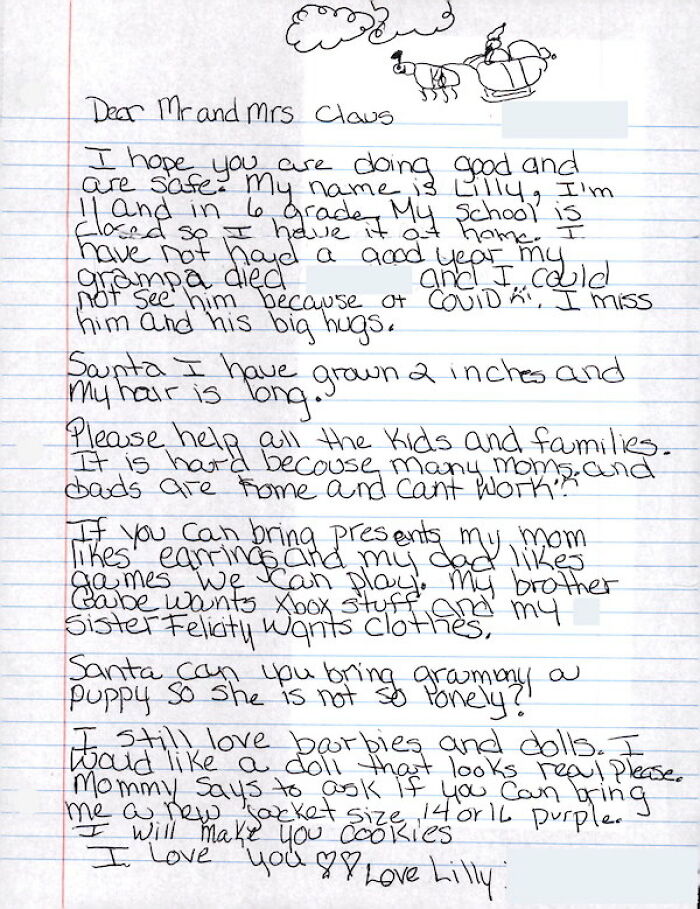 Dear Mr and Mrs Claus
I hope you are doing good and
are safe. My name is Lilly, I'm
11 and in 6 grade. My school is
closed so I have it at home. I
have not hayd a good year my
grampa died and I could
not see him because of COVID. I miss
him and his big hugs.
Santa I have grown 2 inches and
My hair is long.
Please help all the kids and families.
It is hard becouse many moms and
dads are home and cant work
If you can bring presents my mom
likes earrings and my dad likes
games we can play. My brother
Gabe wants xbox stuff and my
sister Felicity wants clothes.
Santa can you bring grammy a
puppy so she is not so lonely?
I still love barbies and dolls. I
would like a doll that looks real please.
Mommy says to ask if you can bring
me a new jacket size 14 or 16 purple.
I will make you cookies
I love you ♡♡ Love Lilly